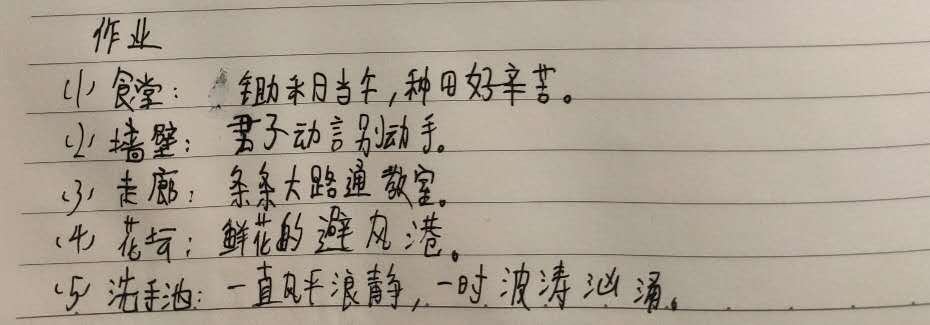 作业
(1) 食堂： 锄禾日当午，种田好辛苦。
(2) 墙壁：君子动言别动手。
(3) 走廊：条条大路通教室。
(4) 花坛：鲜花的避风港。
(5) 洗手池：一直风平浪静，一时波涛汹涌。